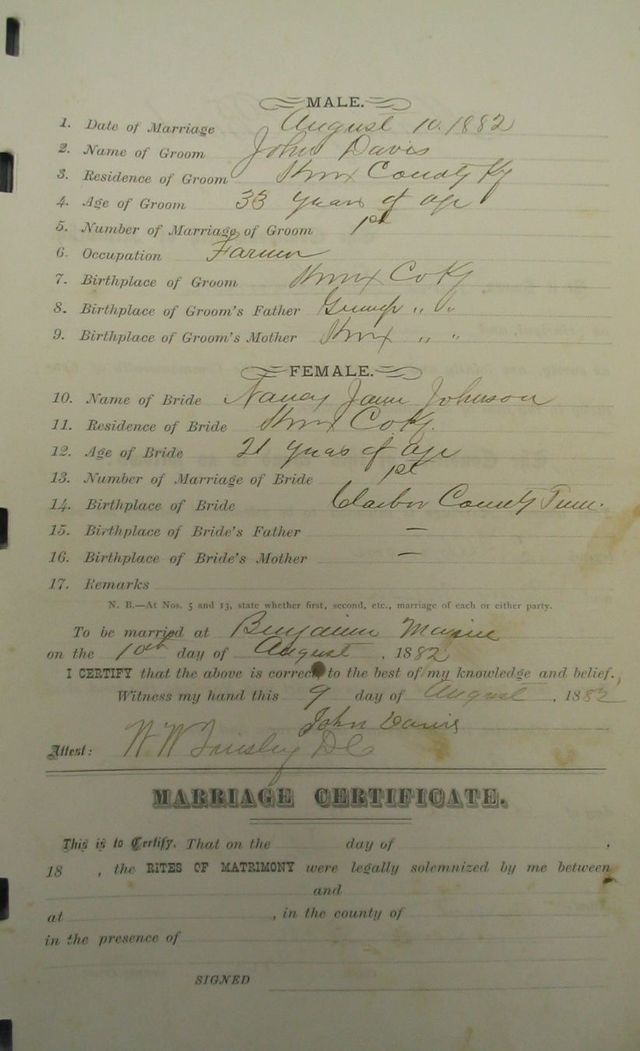 MALE.
1. Date of Marriage August 10. 1882
2. Name of Groom John Davis
3. Residence of Groom Knox County Ky
4. Age of Groom 33 years of age
5. Number of Marriage of Groom 1st
6. Occupation Farmer
7. Birthplace of Groom Knox Co Ky
8. Birthplace of Groom's Father " "
9. Birthplace of Groom's Mother Knox " "
FEMALE.
10. Name of Bride Nancy Jane Johnson
11. Residence of Bride Knox Co Ky.
12. Age of Bride 21 years of age
13. Number of Marriage of Bride 1st
14. Birthplace of Bride Claibor County Tenn.
15. Birthplace of Bride's Father —
16. Birthplace of Bride's Mother —
17. Remarks
N. B.—At Nos. 5 and 13, state whether first, second, etc., marriage of each or either party.
To be married at Benjamin
on the 10th day of August , 1882
I CERTIFY that the above is correct to the best of my knowledge and belief.
Witness my hand this 9 day of August , 1882
John Davis
Attest: W W Tinsley D C
MARRIAGE CERTIFICATE.
This is to Certify, That on the day of .
18 , the RITES OF MATRIMONY were legally solemnized by me between
and
at , in the county of
in the presence of
SIGNED